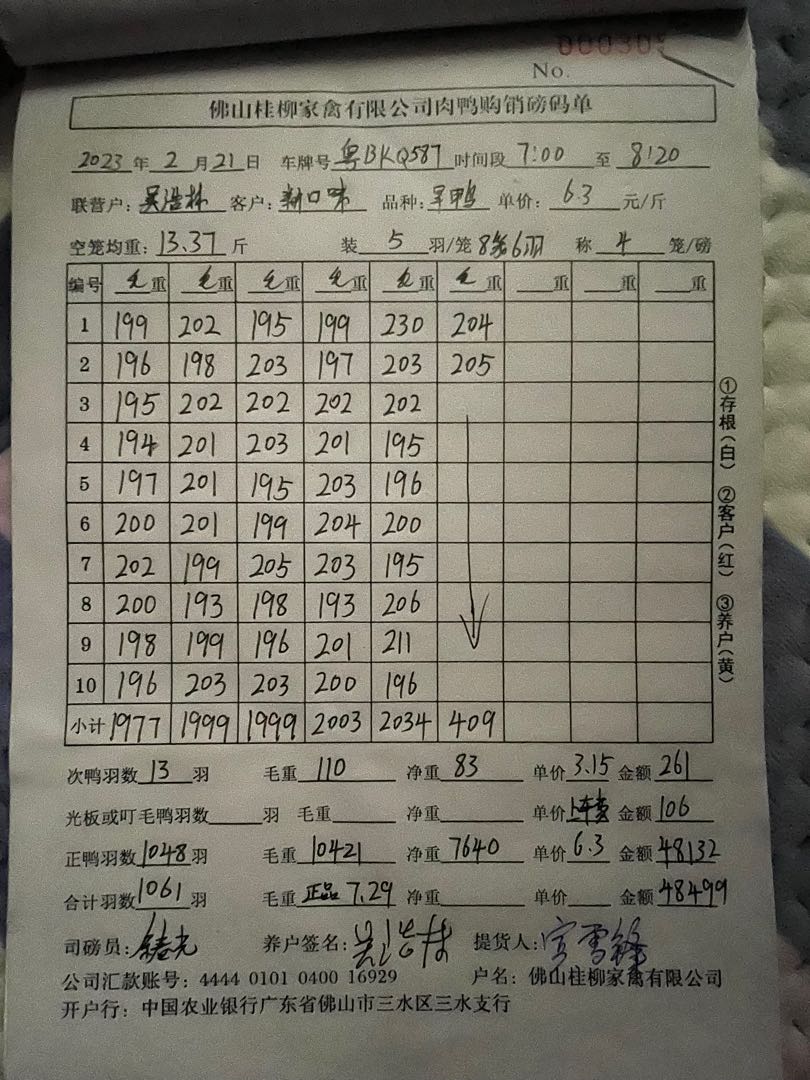 000305
No.
佛山桂柳家禽有限公司肉鸭购销磅码单
2023年2月21日 车牌号粤BKQ587 时间段7:00至8:20
联营户:吴浩林 客户:新口味 品种:旱鸭 单价:6.3元/斤
空笼均重:13.37斤 装5羽/笼 8笼6羽 称4笼/磅
编号 毛重 毛重 毛重 毛重 毛重 毛重 重 重 重
1 199 202 195 199 230 204
2 196 198 203 197 203 205
3 195 202 202 202 202
4 194 201 203 201 195
5 197 201 195 203 196
6 200 201 199 204 200
7 202 199 205 203 195
8 200 193 198 193 206
9 198 199 196 201 211
10 196 203 203 200 196
小计 1977 1999 1999 2003 2034 409
次鸭羽数13羽 毛重110 净重83 单价3.15 金额261
光板或叮毛鸭羽数 羽 毛重 净重 单价上车费 金额106
正鸭羽数1048羽 毛重10421 净重7640 单价6.3 金额48132
合计羽数1061羽 毛重正品7.29 净重 单价 金额48499
司磅员: 养户签名:吴浩林 提货人:
公司汇款账号:4444 0101 0400 16929 户名:佛山桂柳家禽有限公司
开户行:中国农业银行广东省佛山市三水区三水支行
①存根(白) ②客户(红) ③养户(黄)